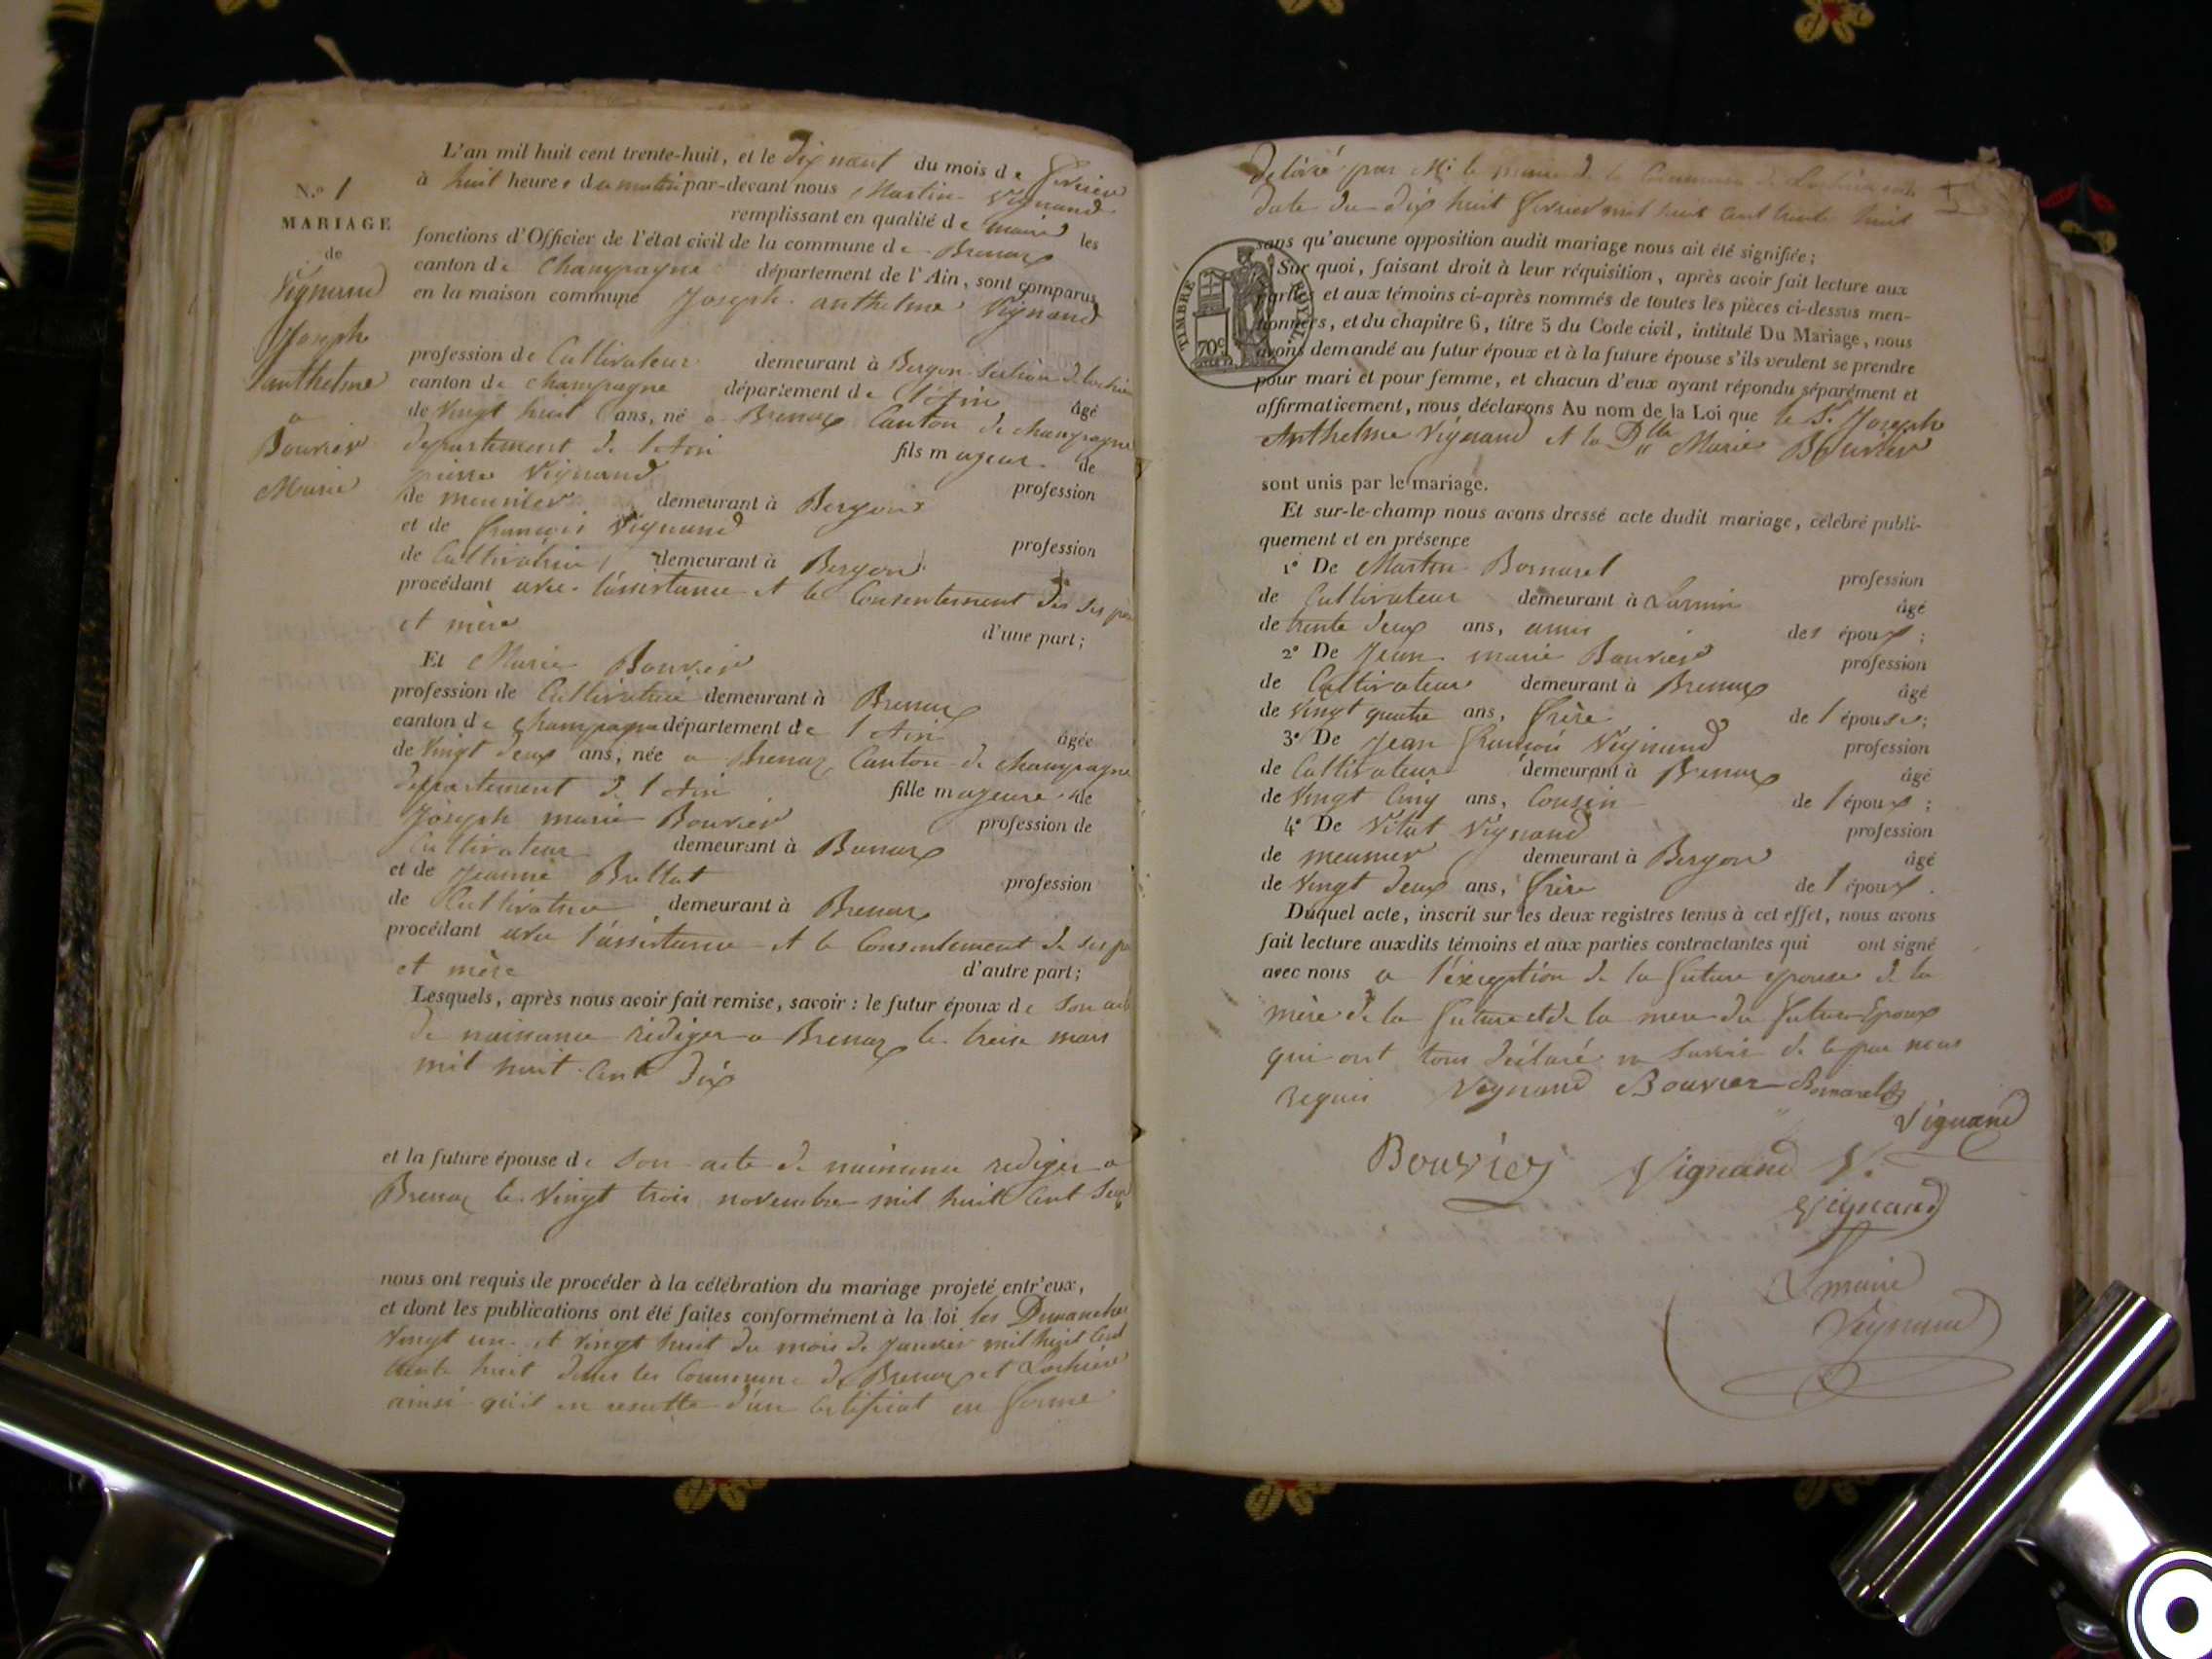 N.o 1
MARIAGE
de
Vignand
Joseph
anthelme
a
Bouvier
Marie
L'an mil huit cent trente-huit, et le dix neuf du mois de fevrier
à huit heures du matin par-devant nous Martin Vignand
remplissant en qualité de maire les
fonctions d'Officier de l'état civil de la commune de Brenaz
canton de Champagne département de l'Ain, sont comparus
en la maison commune Joseph anthelme Vignand
profession de Cultivateur demeurant à Bergon Section de
canton de champagne département de l'Ain âgé
de vingt huit ans, né a Brenaz Canton de champagne
departement de l'Ain fils majeur de
pierre Vignand profession
de meunier demeurant à Bergon
et de françoise Vignand profession
de Cultivatrice demeurant à Bergon
procédant avec l'assistance et le Consentement de ses
et mère d'une part;
Et Marie Bouvier
profession de Cultivatrice demeurant à Brenaz
canton de champagne département de l'Ain âgée
de vingt deux ans, née a Brenaz Canton de champagne
departement de l'Ain fille majeure de
Joseph marie Bouvier profession de
Cultivateur demeurant à Brenaz
et de Jeanne Brillat profession
de Cultivatrice demeurant à Brenaz
procédant avec l'assistance et le Consentement de ses
et mère d'autre part;
Lesquels, après nous avoir fait remise, savoir : le futur époux de son
de naissance rediger a Brenaz le treize mars
mil huit cent dix
et la future épouse de son acte de naissance rediger a
Brenaz le vingt trois novembre mil huit cent
nous ont requis de procéder à la célébration du mariage projeté entr'eux,
et dont les publications ont été faites conformément à la loi les Dimanches
vingt un et vingt huit du mois de Janvier mil huit Cent
trente huit dans les Commune de Brenaz et Lochieu
ainsi qu'il en resulte d'un Certificat en forme
delivré par Mr le maire de la Commune de Lochieu
date du dix huit fevrier mil huit cent trente huit
TIMBRE ROYAL
70c
sans qu'aucune opposition audit mariage nous ait été signifiée;
Sur quoi, faisant droit à leur réquisition, après avoir fait lecture aux
parties et aux témoins ci-après nommés de toutes les pièces ci-dessus men-
tionnées, et du chapitre 6, titre 5 du Code civil, intitulé Du Mariage, nous
avons demandé au futur époux et à la future épouse s'ils veulent se prendre
pour mari et pour femme, et chacun d'eux ayant répondu séparément et
affirmativement, nous déclarons Au nom de la Loi que le Sr Joseph
Anthelme Vignand et la Dlle Marie Bouvier
sont unis par le mariage.
Et sur-le-champ nous avons dressé acte dudit mariage, célébré publi-
quement et en présence
1° De Martin Bornarel profession
de Cultivateur demeurant à âgé
de trente deux ans, amis des époux;
2° De Jean marie Bouvier profession
de Cultivateur demeurant à Brenaz âgé
de vingt quatre ans, frère de l'épouse;
3° De Jean françois Vignand profession
de Cultivateur demeurant à Brenaz âgé
de vingt Cinq ans, Cousin de l'époux;
4° De Vital Vignand profession
de meunier demeurant à Bergon âgé
de vingt deux ans, frère de l'époux.
Duquel acte, inscrit sur les deux registres tenus à cet effet, nous avons
fait lecture auxdits témoins et aux parties contractantes qui ont signé
avec nous a l'éxception de la future epouse de la
mère de la future et de la mere du futur Epoux
qui ont tous déclaré ne savoir de le par nous
requis Vignand Bouvier Bornarel
Vignand
Bouvier Vignand V.
Vignand
maire
Vignand